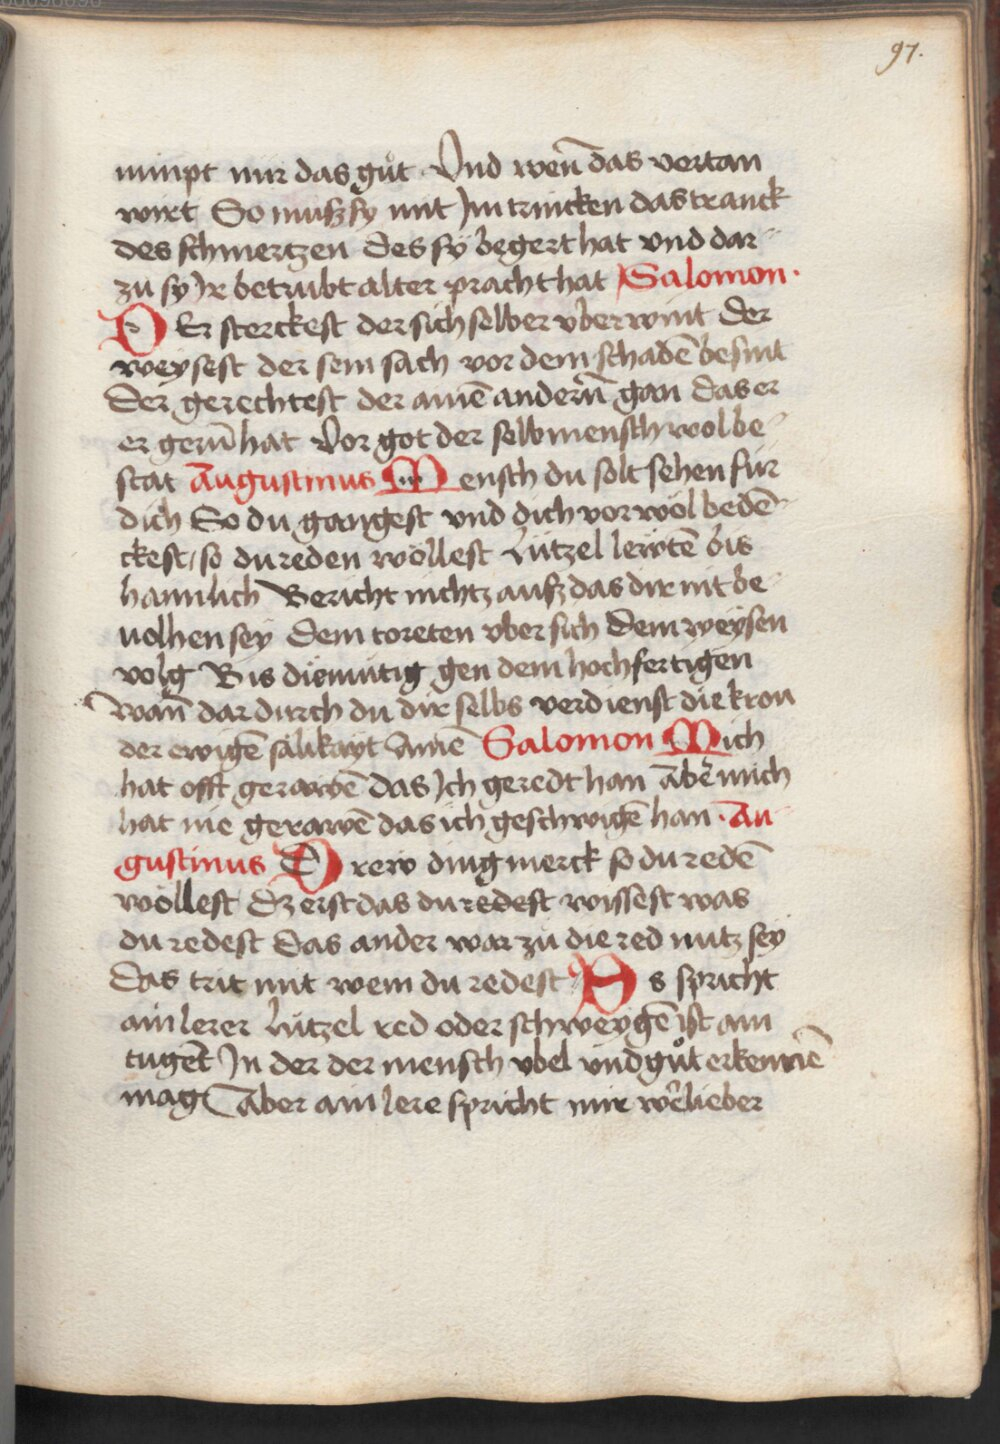 97.
nimpt mir das gůt · Vnd wen̄ das vertan
wirt So musz sy mit Im trincken das tranck
des schmertzen des sÿ begert hat vnd dar-
zu sy Ir betrubt alter pracht hat Salomon ·
DEr sterckest der sich selber vberwint der
weysest der sein sach vor dem schadē besint
Der gerechtest der ainē andern̄ gan das er
er gern̄ hat Vor got der selb mensch wol be-
stat Augustinus Mensch du solt sehen für
dich So du gangest vnd dich vor wol bedē-
ckest / so du reden wöllest Lützel lewtē bis
haimlich Bericht nichtz ausz das dir nit be-
uolhen sey Dem toreten vber sich Dem weysen
volg Bis diemütig gen dem hochfertigen
wan̄ dar durch du dir selbs verdienst die kron
der ewigē sälikayt Amē Salomon Mich
hat offt gerawē das Ich geredt han aber mich
hat nie gerawē das ich geschwigē han · Au-
gustinus Drew ding merck so du redē
wöllest Dz erst das du redest wissest was
du redest Das ander war zů die red nutz sey
Das trit mit wem du redest Es spricht
ain lerer Lützel red oder schweygē ist ain
tuget In der der mensch vbel vnd gůt erkennē
mag Aber ain lere spricht mir wer lieber